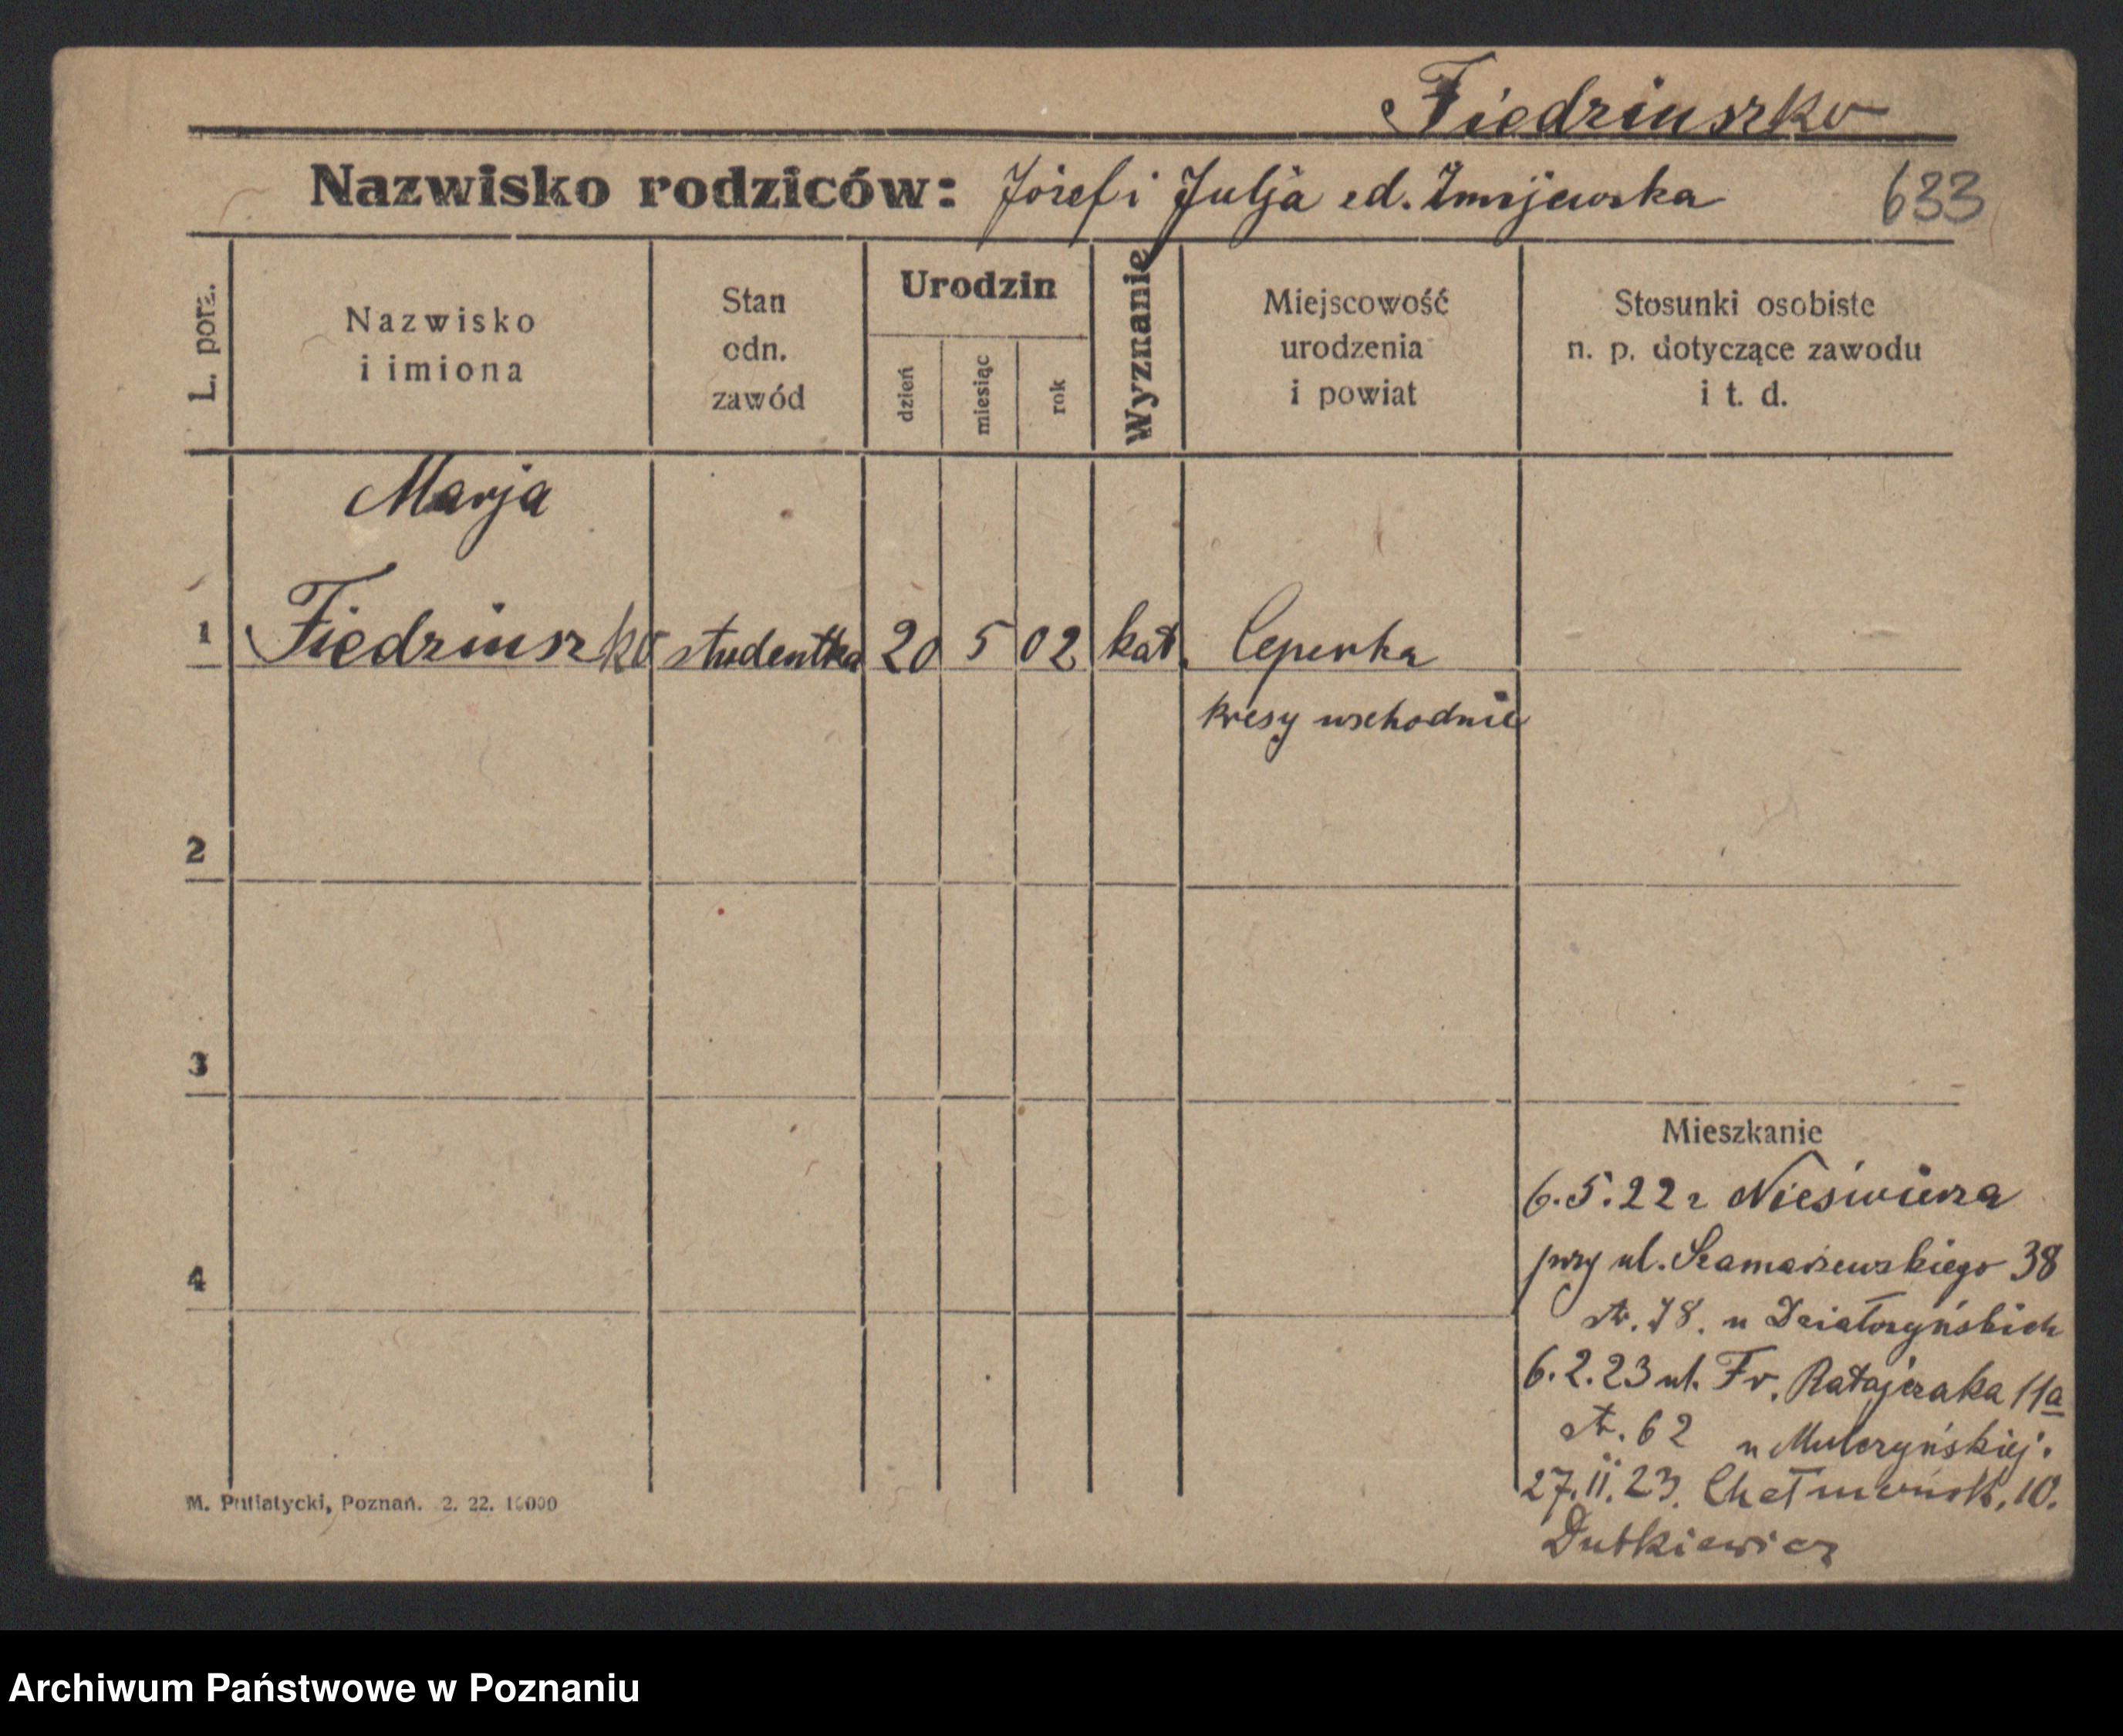 Fiedziuszko
Nazwisko rodziców: Józef i Julja zd. Żmijewska 633
L. porz.
Nazwisko
i imiona
Stan
odn.
zawód
Urodzin
dzień
miesiąc
rok
Wyznanie
Miejscowość
urodzenia
i powiat
Stosunki osobiste
n. p. dotyczące zawodu
i t. d.
Marja
1 Fiedziuszko studentka 20 5 02 kat. Ceperka
kresy wschodnie
2
3
4
Mieszkanie
6.5.22 z Nieświerza
przy ul. Szamarzewskiego 38
str. 78. u Działoszyńskich
6.2.23 ul. Fr. Ratajczaka 11a
str. 62 u Mulczyńskiej.
27.II.23. Chełmońsk. 10.
Dutkiewicz
M. Putiatycki, Poznań. 2. 22. 10000
Archiwum Państwowe w Poznaniu